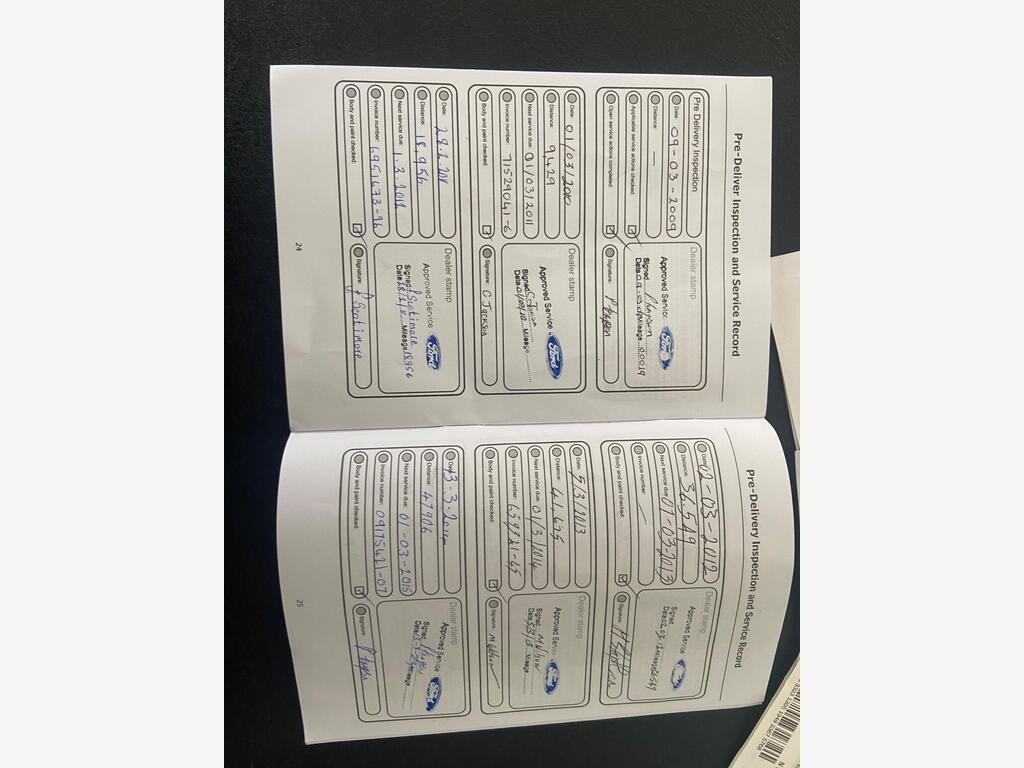 Pre-Deliver Inspection and Service Record
Pre Delivery Inspection
Date: 09-03-2009
Distance: —
Applicable service actions checked:
Open service actions completed:
Dealer stamp
Ford
Approved Service
Signed
Date 09-03-09 Mileage 00019
Signature:
Date: 01/03/2010
Distance: 9,429
Next service due: 01/03/2011
Invoice number: 71529041-6
Body and paint checked:
Dealer stamp
Ford
Approved Service
Signed
Date Mileage
Signature: C Jackson
Date: 28.2.2011
Distance: 18,956
Next service due: 1.3.2012
Invoice number: 6951473-96
Body and paint checked:
Dealer stamp
Ford
Approved Service
Signed P Scotimore
Date 28/2/11 Mileage 18956
Signature: P Scotimore
24
Pre-Delivery Inspection and Service Record
Date: 02-03-2012
Distance: 36,549
Next service due: 01-03-2013
Invoice number: —
Body and paint checked:
Dealer stamp
Ford
Approved Service
Signed
Date 02.03.12 Mileage 36549
Signature:
Date: 5/3/2013
Distance: 41,675
Next service due: 01/3/2014
Invoice number: 659721-65
Body and paint checked:
Dealer stamp
Ford
Approved Service
Signed M Wilson
Date 5/3/13 Mileage
Signature: M Wilson
Date: 13-3-2014
Distance: 47906
Next service due: 01-03-2015
Invoice number: 09175421-07
Body and paint checked:
Dealer stamp
Ford
Approved Service
Signed
Date Mileage
Signature:
25